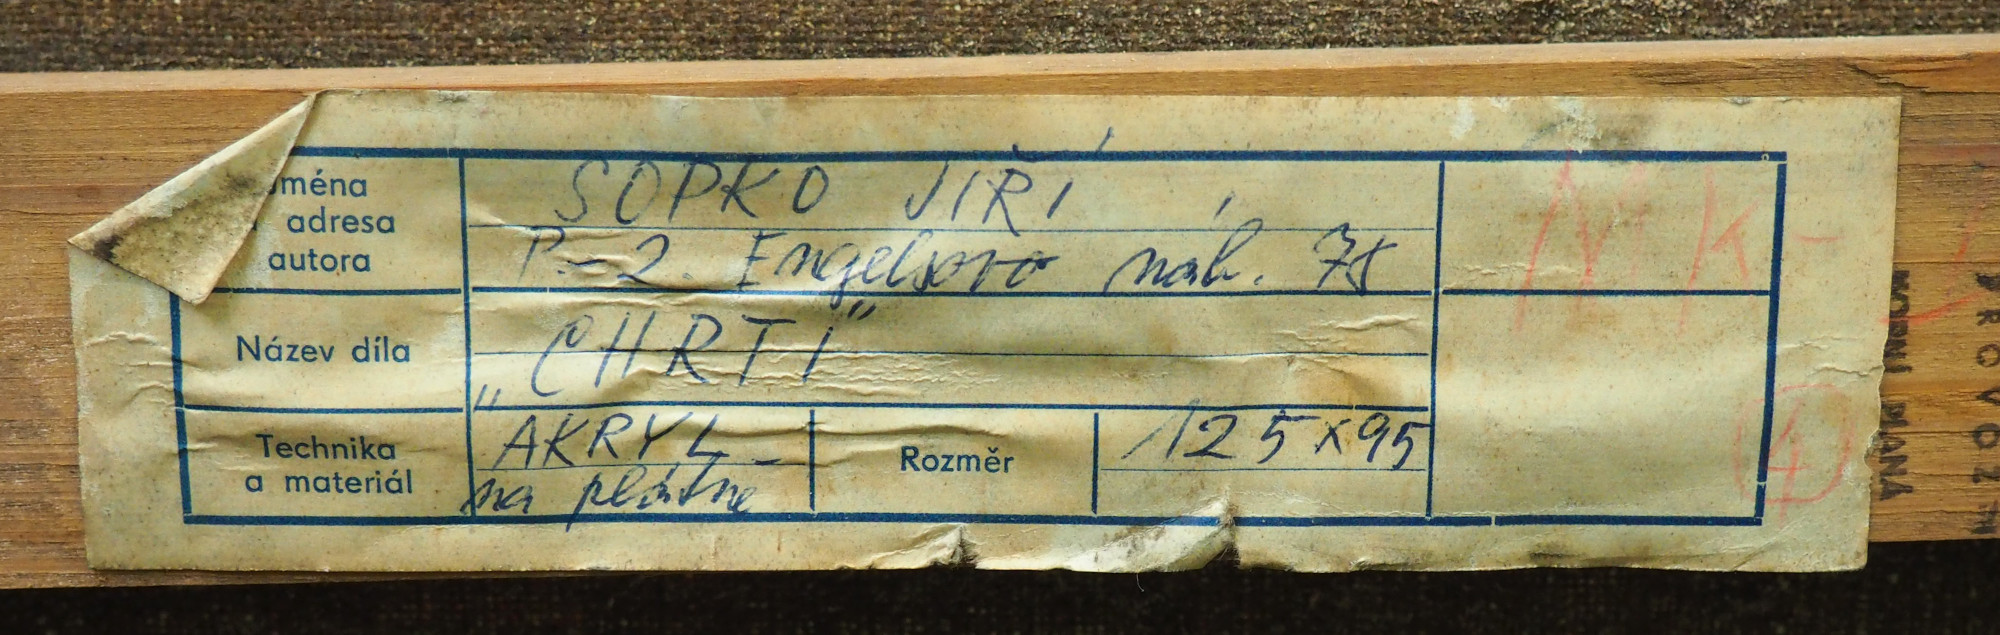 ména
adresa
autora
SOPKO JIŘÍ
P-2. Engelsovo náb. 78
Název díla
„CHRTI"
Technika
a materiál
AKRYL
na plátně
Rozměr
125x95
MK-
4